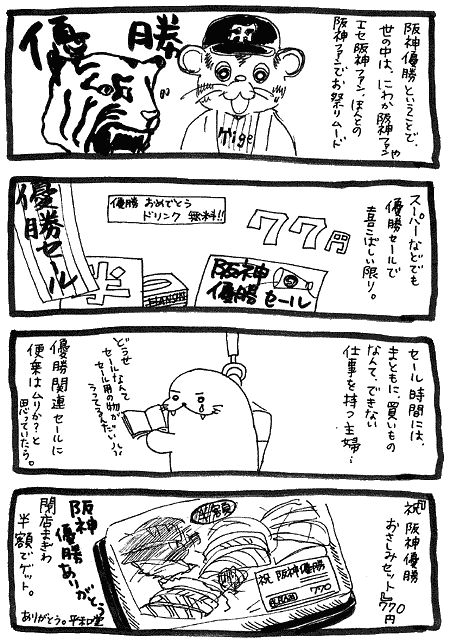 阪神優勝ということで、
世の中は、にわか阪神ファンや
エセ阪神ファン、ほんとの
阪神ファンでお祭りムード
優勝
Tige
スーパーなどでも
優勝セールで
喜こばしい限り。
77円
優勝 おめでとう
ドリンク 無料!!
阪神
優勝 セール
半
優勝セール
セール時間には、
まともに、買いもの
なんて、できない
仕事を持つ主婦…
どうせ
セールなんて
セール用の物が
優勝関連セールに
便乗はムリか?と
思っていたら。
『祝 阪神優勝
おさしみセット』770円
半額
祝 阪神優勝
770
阪神
優勝ありがとう
閉店まぎわ
半額でゲット。
ありがとう。平和堂